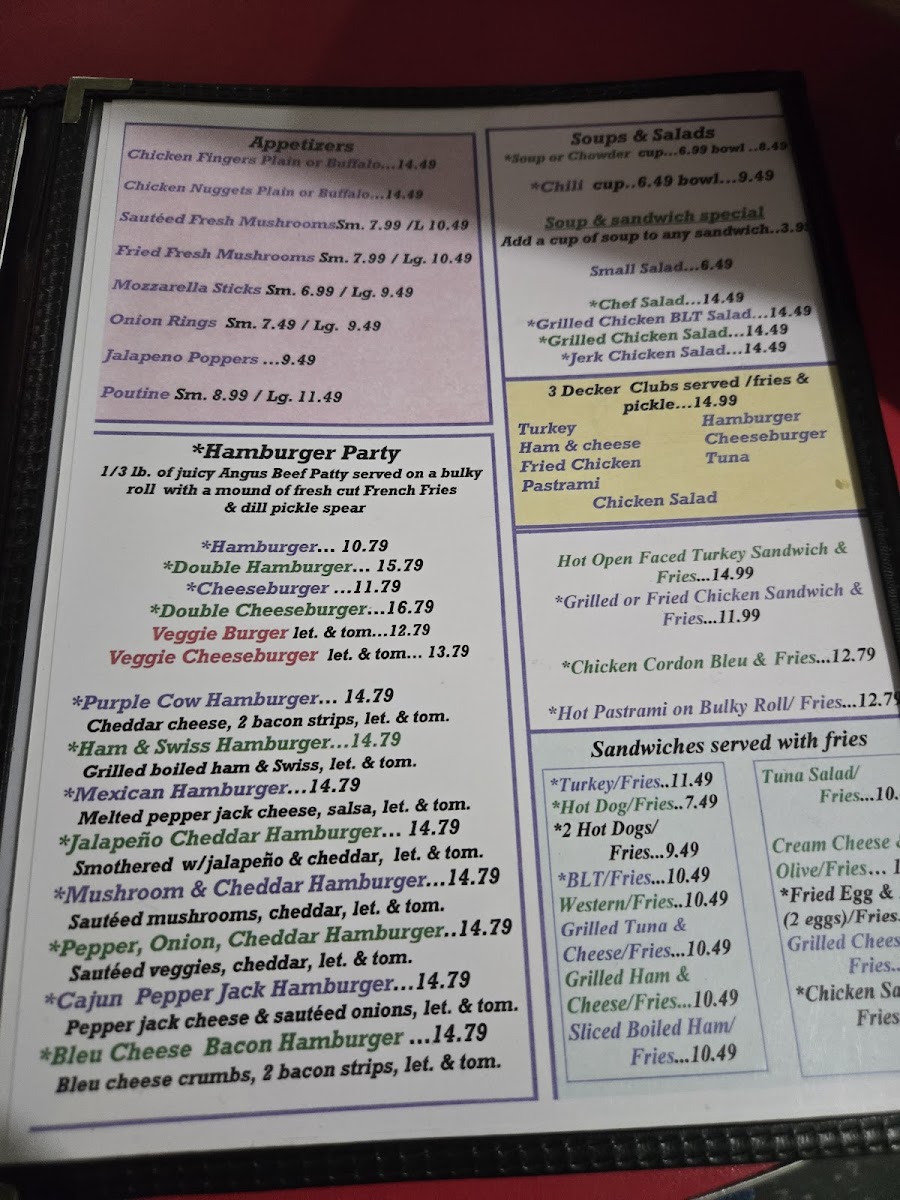 Appetizers
Chicken Fingers Plain or Buffalo...14.49
Chicken Nuggets Plain or Buffalo...14.49
Sautéed Fresh MushroomsSm. 7.99 /L 10.49
Fried Fresh Mushrooms Sm. 7.99 / Lg. 10.49
Mozzarella Sticks Sm. 6.99 / Lg. 9.49
Onion Rings Sm. 7.49 / Lg. 9.49
Jalapeno Poppers ...9.49
Poutine Sm. 8.99 / Lg. 11.49
*Hamburger Party
1/3 lb. of juicy Angus Beef Patty served on a bulky
roll with a mound of fresh cut French Fries
& dill pickle spear
*Hamburger... 10.79
*Double Hamburger... 15.79
*Cheeseburger ...11.79
*Double Cheeseburger...16.79
Veggie Burger let. & tom...12.79
Veggie Cheeseburger let. & tom... 13.79
*Purple Cow Hamburger... 14.79
Cheddar cheese, 2 bacon strips, let. & tom.
*Ham & Swiss Hamburger...14.79
Grilled boiled ham & Swiss, let. & tom.
*Mexican Hamburger...14.79
Melted pepper jack cheese, salsa, let. & tom.
*Jalapeño Cheddar Hamburger... 14.79
Smothered w/jalapeño & cheddar, let. & tom.
*Mushroom & Cheddar Hamburger...14.79
Sautéed mushrooms, cheddar, let. & tom.
*Pepper, Onion, Cheddar Hamburger..14.79
Sautéed veggies, cheddar, let. & tom.
*Cajun Pepper Jack Hamburger...14.79
Pepper jack cheese & sautéed onions, let. & tom.
*Bleu Cheese Bacon Hamburger ...14.79
Bleu cheese crumbs, 2 bacon strips, let. & tom.
Soups & Salads
*Soup or Chowder cup...6.99 bowl ..8.49
*Chili cup..6.49 bowl...9.49
Soup & sandwich special
Add a cup of soup to any sandwich..3.99
Small Salad...6.49
*Chef Salad...14.49
*Grilled Chicken BLT Salad...14.49
*Grilled Chicken Salad...14.49
*Jerk Chicken Salad...14.49
3 Decker Clubs served /fries &
pickle...14.99
Turkey
Ham & cheese
Fried Chicken
Pastrami
Hamburger
Cheeseburger
Tuna
Chicken Salad
Hot Open Faced Turkey Sandwich &
Fries...14.99
*Grilled or Fried Chicken Sandwich &
Fries...11.99
*Chicken Cordon Bleu & Fries...12.79
*Hot Pastrami on Bulky Roll/ Fries...12.79
Sandwiches served with fries
*Turkey/Fries..11.49
*Hot Dog/Fries..7.49
*2 Hot Dogs/
Fries...9.49
*BLT/Fries...10.49
Western/Fries..10.49
Grilled Tuna &
Cheese/Fries...10.49
Grilled Ham &
Cheese/Fries...10.49
Sliced Boiled Ham/
Fries...10.49
Tuna Salad/
Fries...10.
Cream Cheese &
Olive/Fries... 1
*Fried Egg &
(2 eggs)/Fries.
Grilled Chees
Fries..
*Chicken Sa
Fries